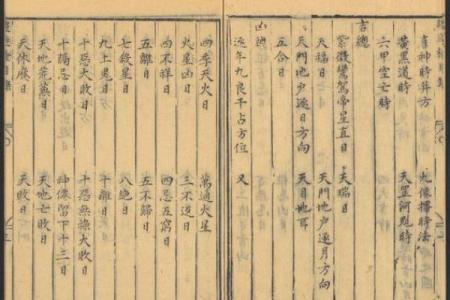 喜神時并方
黃黑道時 天罡河魁時
六甲空亡時
吉總
紫微鸞駕帝星直日
天福日 天瑞日
天門地戶逐日方向 天門地戶逐月方向
五合日 天目地耳
凶
逐年九良干占方位 又
四季天火日 萬通火星
火星凶日 三不返日
四不祥日 四忌五窮日
五離日 五不歸日
七殺星日 八絕日
九土鬼日 離日
十惡大敗日 十惡無祿大敗日
十隔忌日 留下十三日
天地荒蕪日 天地亡敗日
天休廢日 天敗日